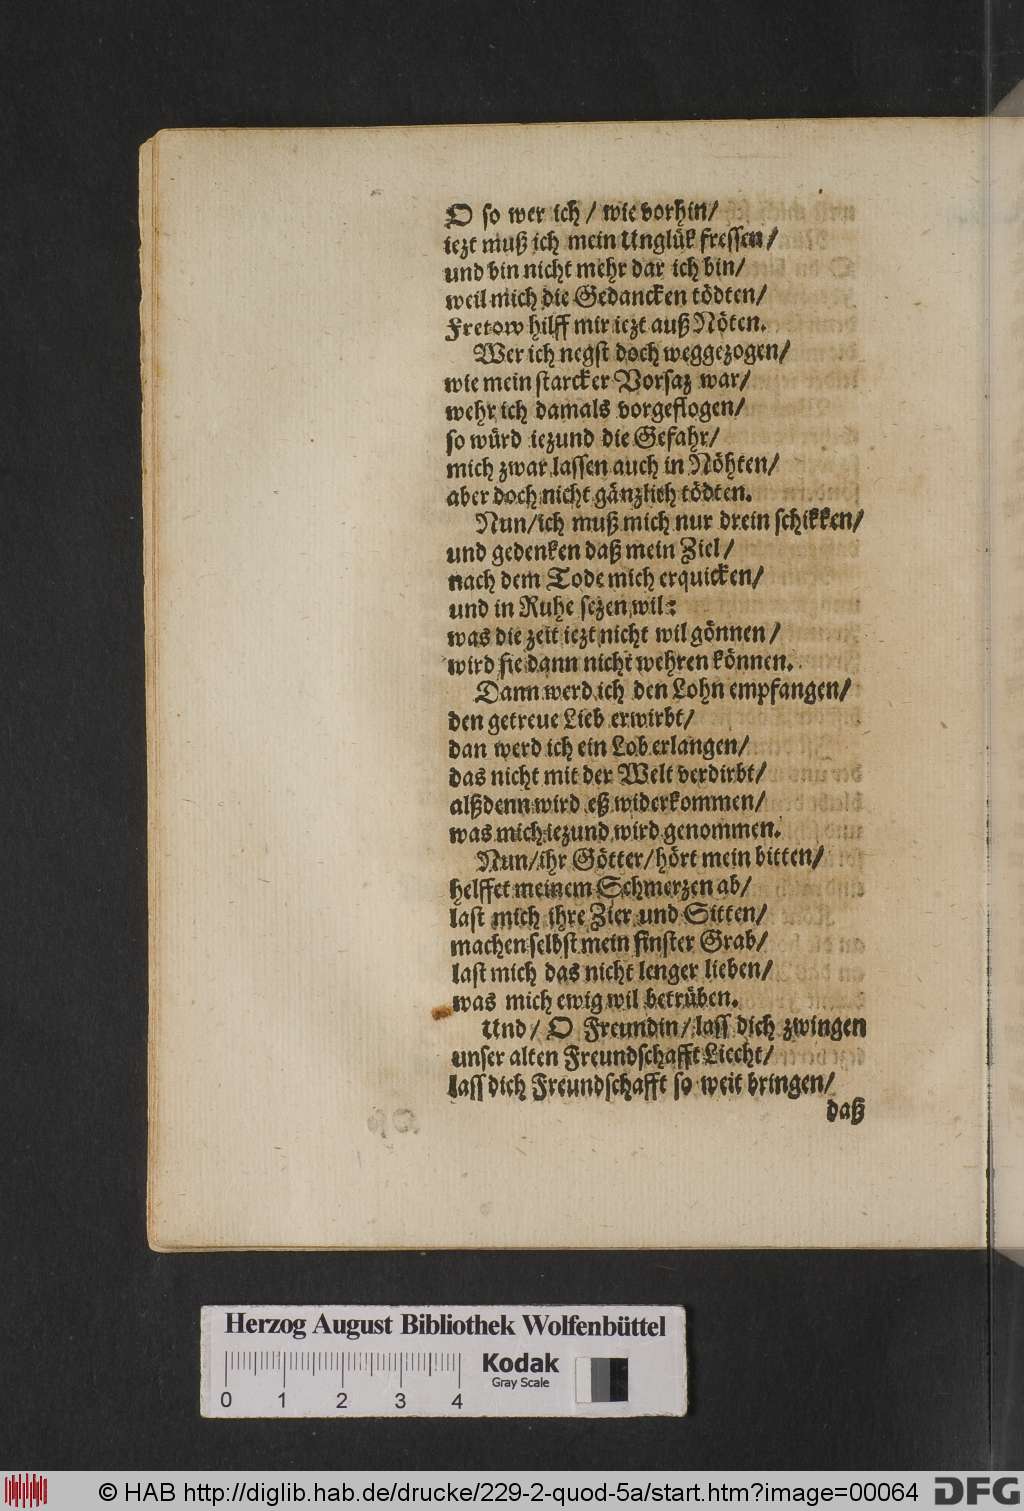 O so wer ich / wie vorhin/
iezt muß ich mein Unglük fressen/
und bin nicht mehr dar ich bin/
weil mich die Gedancken tödten/
Fretow hilff mir iezt auß Nöten.
Wer ich negst doch weggezogen/
wie mein starcker Vorsaz war/
wehr ich damals vorgeflogen/
so würd iezund die Gefahr/
mich zwar lassen auch in Nöhten/
aber doch nicht gänzlich tödten.
Nun/ich muß mich nur drein schikken/
und gedenken daß mein Ziel/
nach dem Tode mich erquicken/
und in Ruhe sezen wil:
was die zeit iezt nicht wil gönnen /
wird sie dann nicht wehren können.
Dann werd ich den Lohn empfangen/
den getreue Lieb erwirbt/
dan werd ich ein Lob erlangen/
das nicht mit der Welt verdirbt/
alßdenn wird eß widerkommen/
was mich iezund wird genommen.
Nun/ihr Götter/hört mein bitten/
helffet meinem Schmerzen ab/
last mich ihre Zier und Sitten/
machen selbst mein finster Grab/
last mich das nicht lenger lieben/
was mich ewig wil betrüben.
Und/ O Freundin/lass dich zwingen
unser alten Freundschafft Liecht/
lass dich Freundschafft so weit bringen/
daß
Herzog August Bibliothek Wolfenbüttel
Kodak
Gray Scale
0 1 2 3 4
© HAB http://diglib.hab.de/drucke/229-2-quod-5a/start.htm?image=00064
DFG